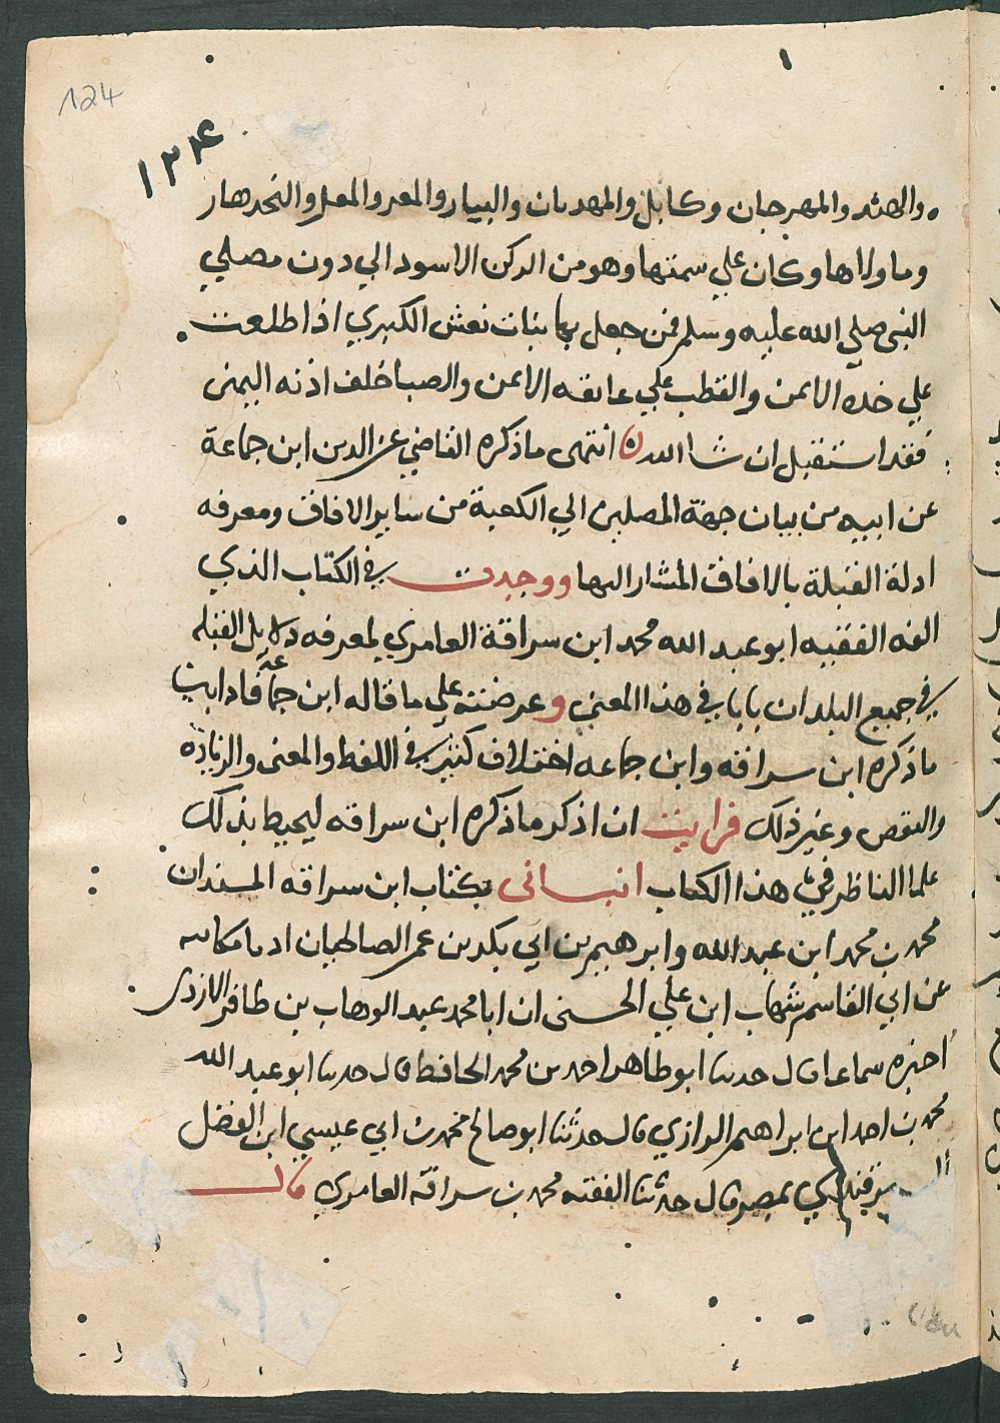 124
١٢٤
والهند والمهرجان وكابل والمهدبان والبيار والمعبر والمعل والنحدهار
وما والاها وكان علي سمتها وهو من الركن الاسود الي دون مصلي
النبى صلي الله عليه وسلم فمن جعل بها بنات نعش الكبري اذا طلعت
علي خده الايمن والقطب علي عاتقه الايمن والصبا خلف اذنه اليمنى
فقد استقبل ان شا الله انتهى ما ذكره القاضي عز الدين ابن جماعة
عن ابيه من بيان جهة المصلين الي الكعبة من ساير الافاق ومعرفه
ادلة القبلة بالافاق المشار اليها ووجدت في الكتاب الذي
الفه الفقيه ابو عبد الله محمد ابن سراقة العامري لمعرفه دلايل القبله
في جميع البلدان بابا في هذا المعني وعرضته علي ما قاله ابن جماعة فاذا بين
ما ذكره ابن سراقه وابن جماعه اختلاف كثير في اللفظ والمعنى والزيادة
والنقص وغير ذلك فرايت ان اذكر ما ذكره ابن سراقه ليحيط بذلك
علما الناظر في هذا الكتاب انباني بكتاب ابن سراقه المسندان
محمد بن محمد ابن عبد الله وابرهيم بن ابي بكر بن عمر الصالحيان اذنا مكاتبه
عن ابي القاسم شهاب ابن علي الحسنى ان ابا محمد عبد الوهاب بن ظافر الازدى
اخبره سماعا قال حدثنا ابو طاهر احمد بن محمد الحافظ قال حدثنا ابو عبد الله
محمد بن احمد ابن ابراهيم الرازي قال حدثنا ابو صالح محمد بن ابي عيسي ابن الفضل
السمرقندي بمصر قال حدثنا الفقيه محمد بن سراقة العامري قال